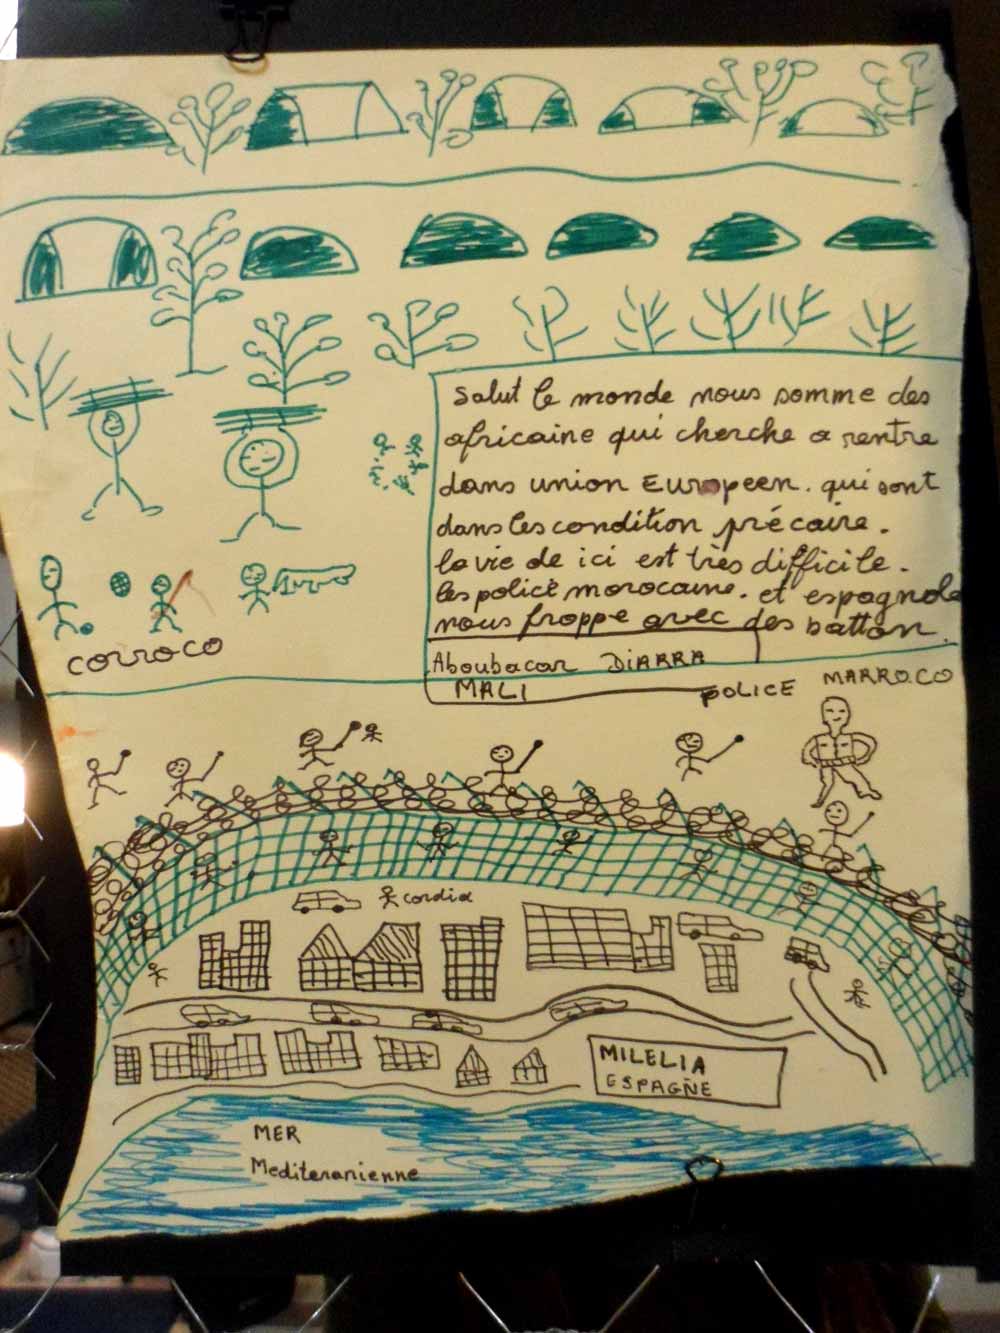 salut le monde nous somme des
africaine qui cherche a rentre
dans union European. qui sont
dans les condition précaire.
la vie de ici est très difficile.
les police morocaine. et espagnole
nous frappe avec des batton.
Aboubacar DiARRA
MALI
corroco
POLICE MARROCO
cordia
MILELIA
ESPAGÑE
MER
Mediteranienne